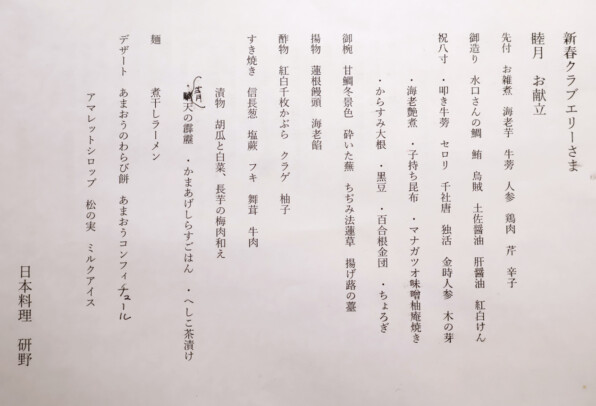 新春クラブエリーさま
睦月　お献立
先付　お雑煮　海老芋　牛蒡　人参　鶏肉　芹　辛子
御造り　水口さんの鯛　鮪　烏賊　土佐醤油　肝醤油　紅白けん
祝八寸　・叩き牛蒡　セロリ　千社唐　独活　金時人参　木の芽
・海老艶煮　・子持ち昆布　・マナガツオ味噌柚庵焼き
・からすみ大根　・黒豆　・百合根金団　・ちょろぎ
御椀　甘鯛冬景色　砕いた蕪　ちぢみ法蓮草　揚げ蕗の薹
揚物　蓮根饅頭　海老餡
酢物　紅白千枚かぶら　クラゲ　柚子
すき焼き　信長葱　塩蕨　フキ　舞茸　牛肉
漬物　胡瓜と白菜、長芋の梅肉和え
・青天の霹靂　・かまあげしらすごはん　・へしこ茶漬け
麺　煮干しラーメン
デザート　あまおうのわらび餅　あまおうコンフィチュール
アマレットシロップ　松の実　ミルクアイス
日本料理　研野